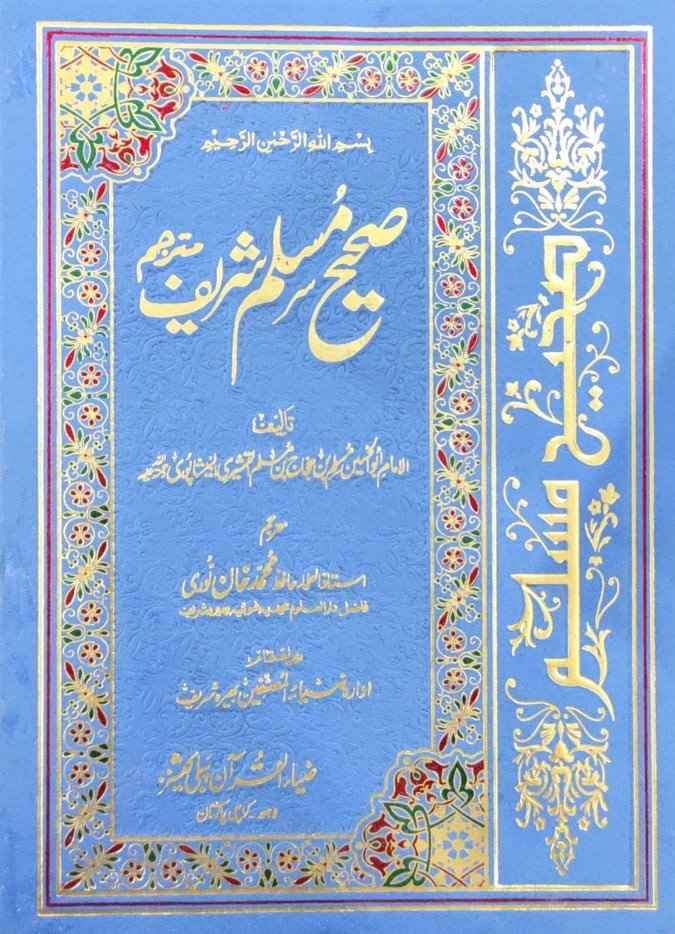 بِسْمِ اللهِ الرَّحْمٰنِ الرَّحِيْمِ
صحیح مُسلم شریف مترجم
تالیف
الامام ابوالحسین مسلم بن حجاج بن مسلم القشیری النیشاپوری رحمۃ اللہ علیہ
مترجم
استاذ العلماء حافظ محمد خان نوری
فاضل دارالعلوم محمدیہ غوثیہ بھیرہ شریف
من تصنیفات
ادارہ ضیاء المصنفین بھیرہ شریف
ضیاء القرآن پبلی کیشنز
لاہور - کراچی پاکستان
صحیح مسلم